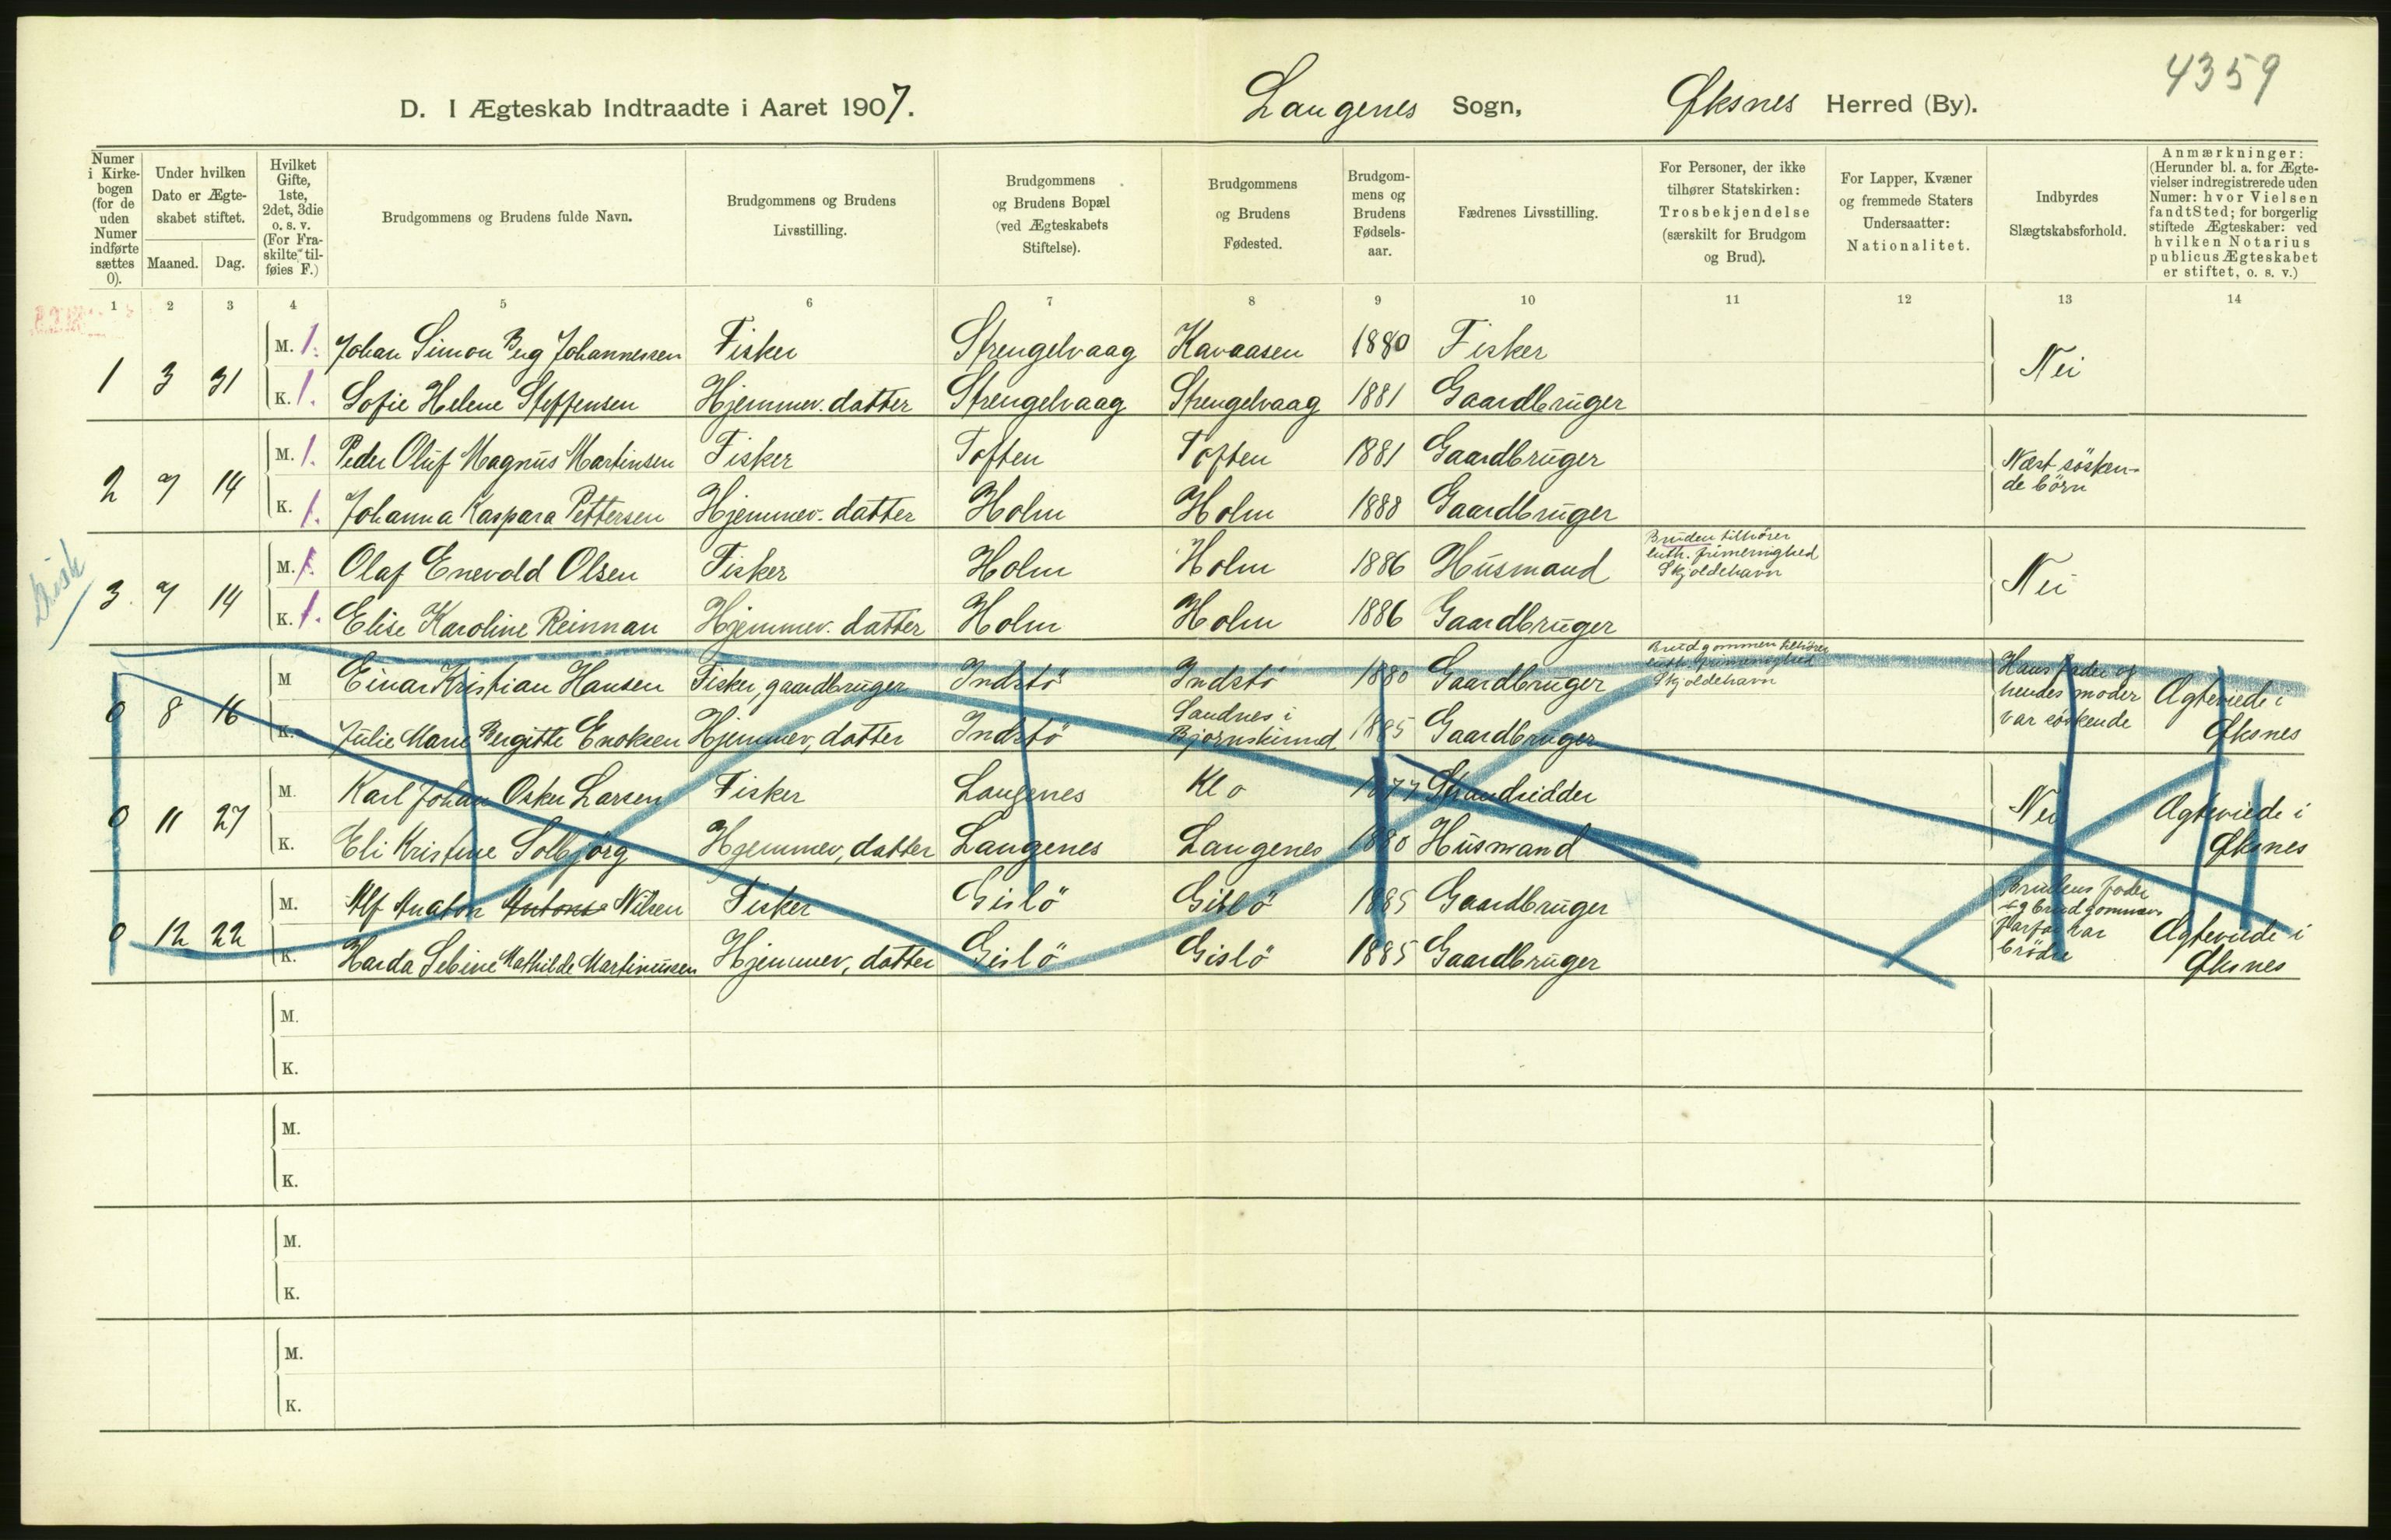 4359
D. I Ægteskab Indtraadte i Aaret 1907. Langenes Sogn, Øksnes Herred (By).
Numer i Kirkebogen (for de uden Numer indførte sættes 0).
Under hvilken Dato er Ægteskabet stiftet.
Maaned. Dag.
Hvilket Gifte, 1ste, 2det, 3die o. s. v. (For Fraskilte tilføies F.)
Brudgommens og Brudens fulde Navn.
Brudgommens og Brudens Livsstilling.
Brudgommens og Brudens Bopæl (ved Ægteskabets Stiftelse).
Brudgommens og Brudens Fødested.
Brudgommens og Brudens Fødselsaar.
Fædrenes Livsstilling.
For Personer, der ikke tilhører Statskirken: Trosbekjendelse (særskilt for Brudgom og Brud).
For Lapper, Kvæner og fremmede Staters Undersaatter: Nationalitet.
Indbyrdes Slægtskabsforhold.
Anmærkninger: (Herunder bl. a. for Ægtevielser indregistrerede uden Numer: hvor Vielsen fandt Sted; for borgerlig stiftede Ægteskaber: ved hvilken Notarius publicus Ægteskabet er stiftet, o. s. v.)
1 2 3 4 5 6 7 8 9 10 11 12 13 14
1 3 31 M. 1. Johan Simon Berg Johannessen Fisker Strengelvaag Kavaasen 1880 Fisker Nei
K. 1. Sofie Helene Steffensen Hjemmev. datter Strengelvaag Strengelvaag 1881 Gaardbruger
2 7 14 M. 1. Peder Oluf Magnus Martinsen Fisker Toften Toften 1881 Gaardbruger Næst söskende börn
K. 1. Johanna Kaspara Pettersen Hjemmev. datter Holm Holm 1888 Gaardbruger
3. 7 14 M. 1. Olaf Enevold Olsen Fisker Holm Holm 1886 Husmand Bruden tilhörer luth. frimenighed Skjoldehavn Nei
K. 1. Elise Karoline Reinman Hjemmev. datter Holm Holm 1886 Gaardbruger
0 8 16 M Einar Kristian Hansen Fisker, gaardbruger Indstö Indstö 1880 Gaardbruger Brudgommen tilhörer luth. frimenighed Skjoldehavn Hans fader og hendes moder var söskende Ægteviede i Øksnes
K. Julie Marie Bergitte Enoksen Hjemmev, datter Indstö Sandnes i Bjørnskinnd 1885 Gaardbruger
0 11 27 M. Karl Johan Oskar Larsen Fisker Langenes Klo 1877 Strandsidder Nei Ægteviede i Øksnes
K. Eli Kristine Solbjörg Hjemmev, datter Langenes Langenes 1880 Husmand
0 12 22 M. Alf Anaton Nilsen Fisker Gislö Gislö 1885 Gaardbruger Brudens fader og brudgommens farfar var brödre Ægteviede i Øksnes
K. Harda Sebine Mathilde Martinussen Hjemmev, datter Gislö Gislö 1885 Gaardbruger
M.
K.
M.
K.
M.
K.
M.
K.